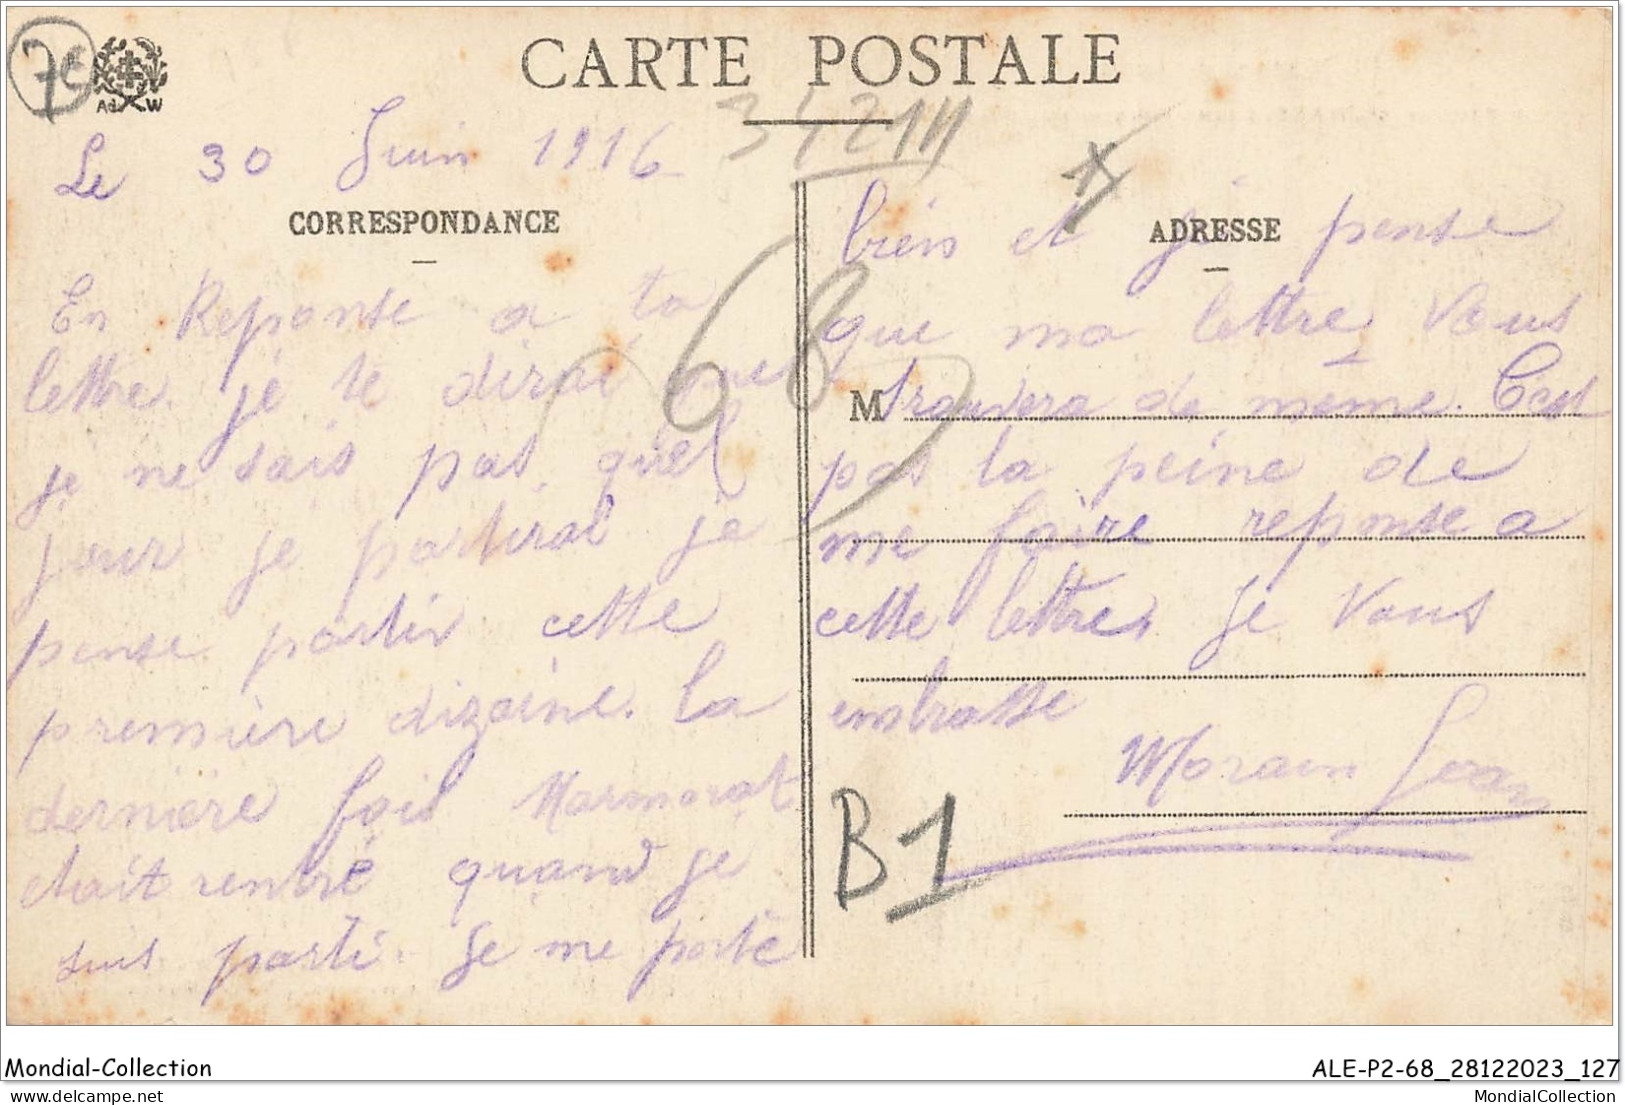 CARTE POSTALE
7€
A d W
34211
Le 30 Juin 1916
CORRESPONDANCE
ADRESSE
En Reponse a ta
lettre je te dirai que
je ne sais pas quel
jour je partirai je
pense partir cette
première dizaine. la
dernière fois Marmorat
etait rentré quand je
suis parti. Je me porte
bien et j pense
que ma lettre Vous
M
trouvera de même. C'est
pas la peine de
me faire reponse a
cette lettre, Je Vous
embrasse
Morain Jean
68
B1
Mondial-Collection
ALE-P2-68_28122023_127
delcampe.net
MondialCollection